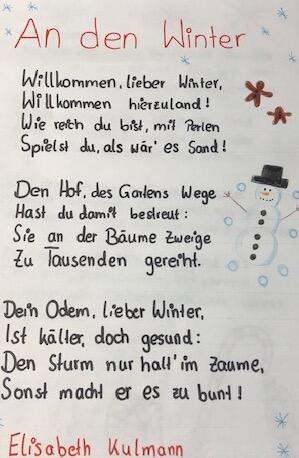 An den Winter
Willkommen, lieber Winter,
Willkommen hierzuland!
Wie reich du bist, mit Perlen
Spielst du, als wär' es Sand!
Den Hof, des Gartens Wege
Hast du damit bestreut:
Sie an der Bäume Zweige
Zu Tausenden gereiht.
Dein Odem, lieber Winter,
Ist kälter, doch gesund:
Den Sturm nur halt' im Zaume,
Sonst macht er es zu bunt!
Elisabeth Kulmann